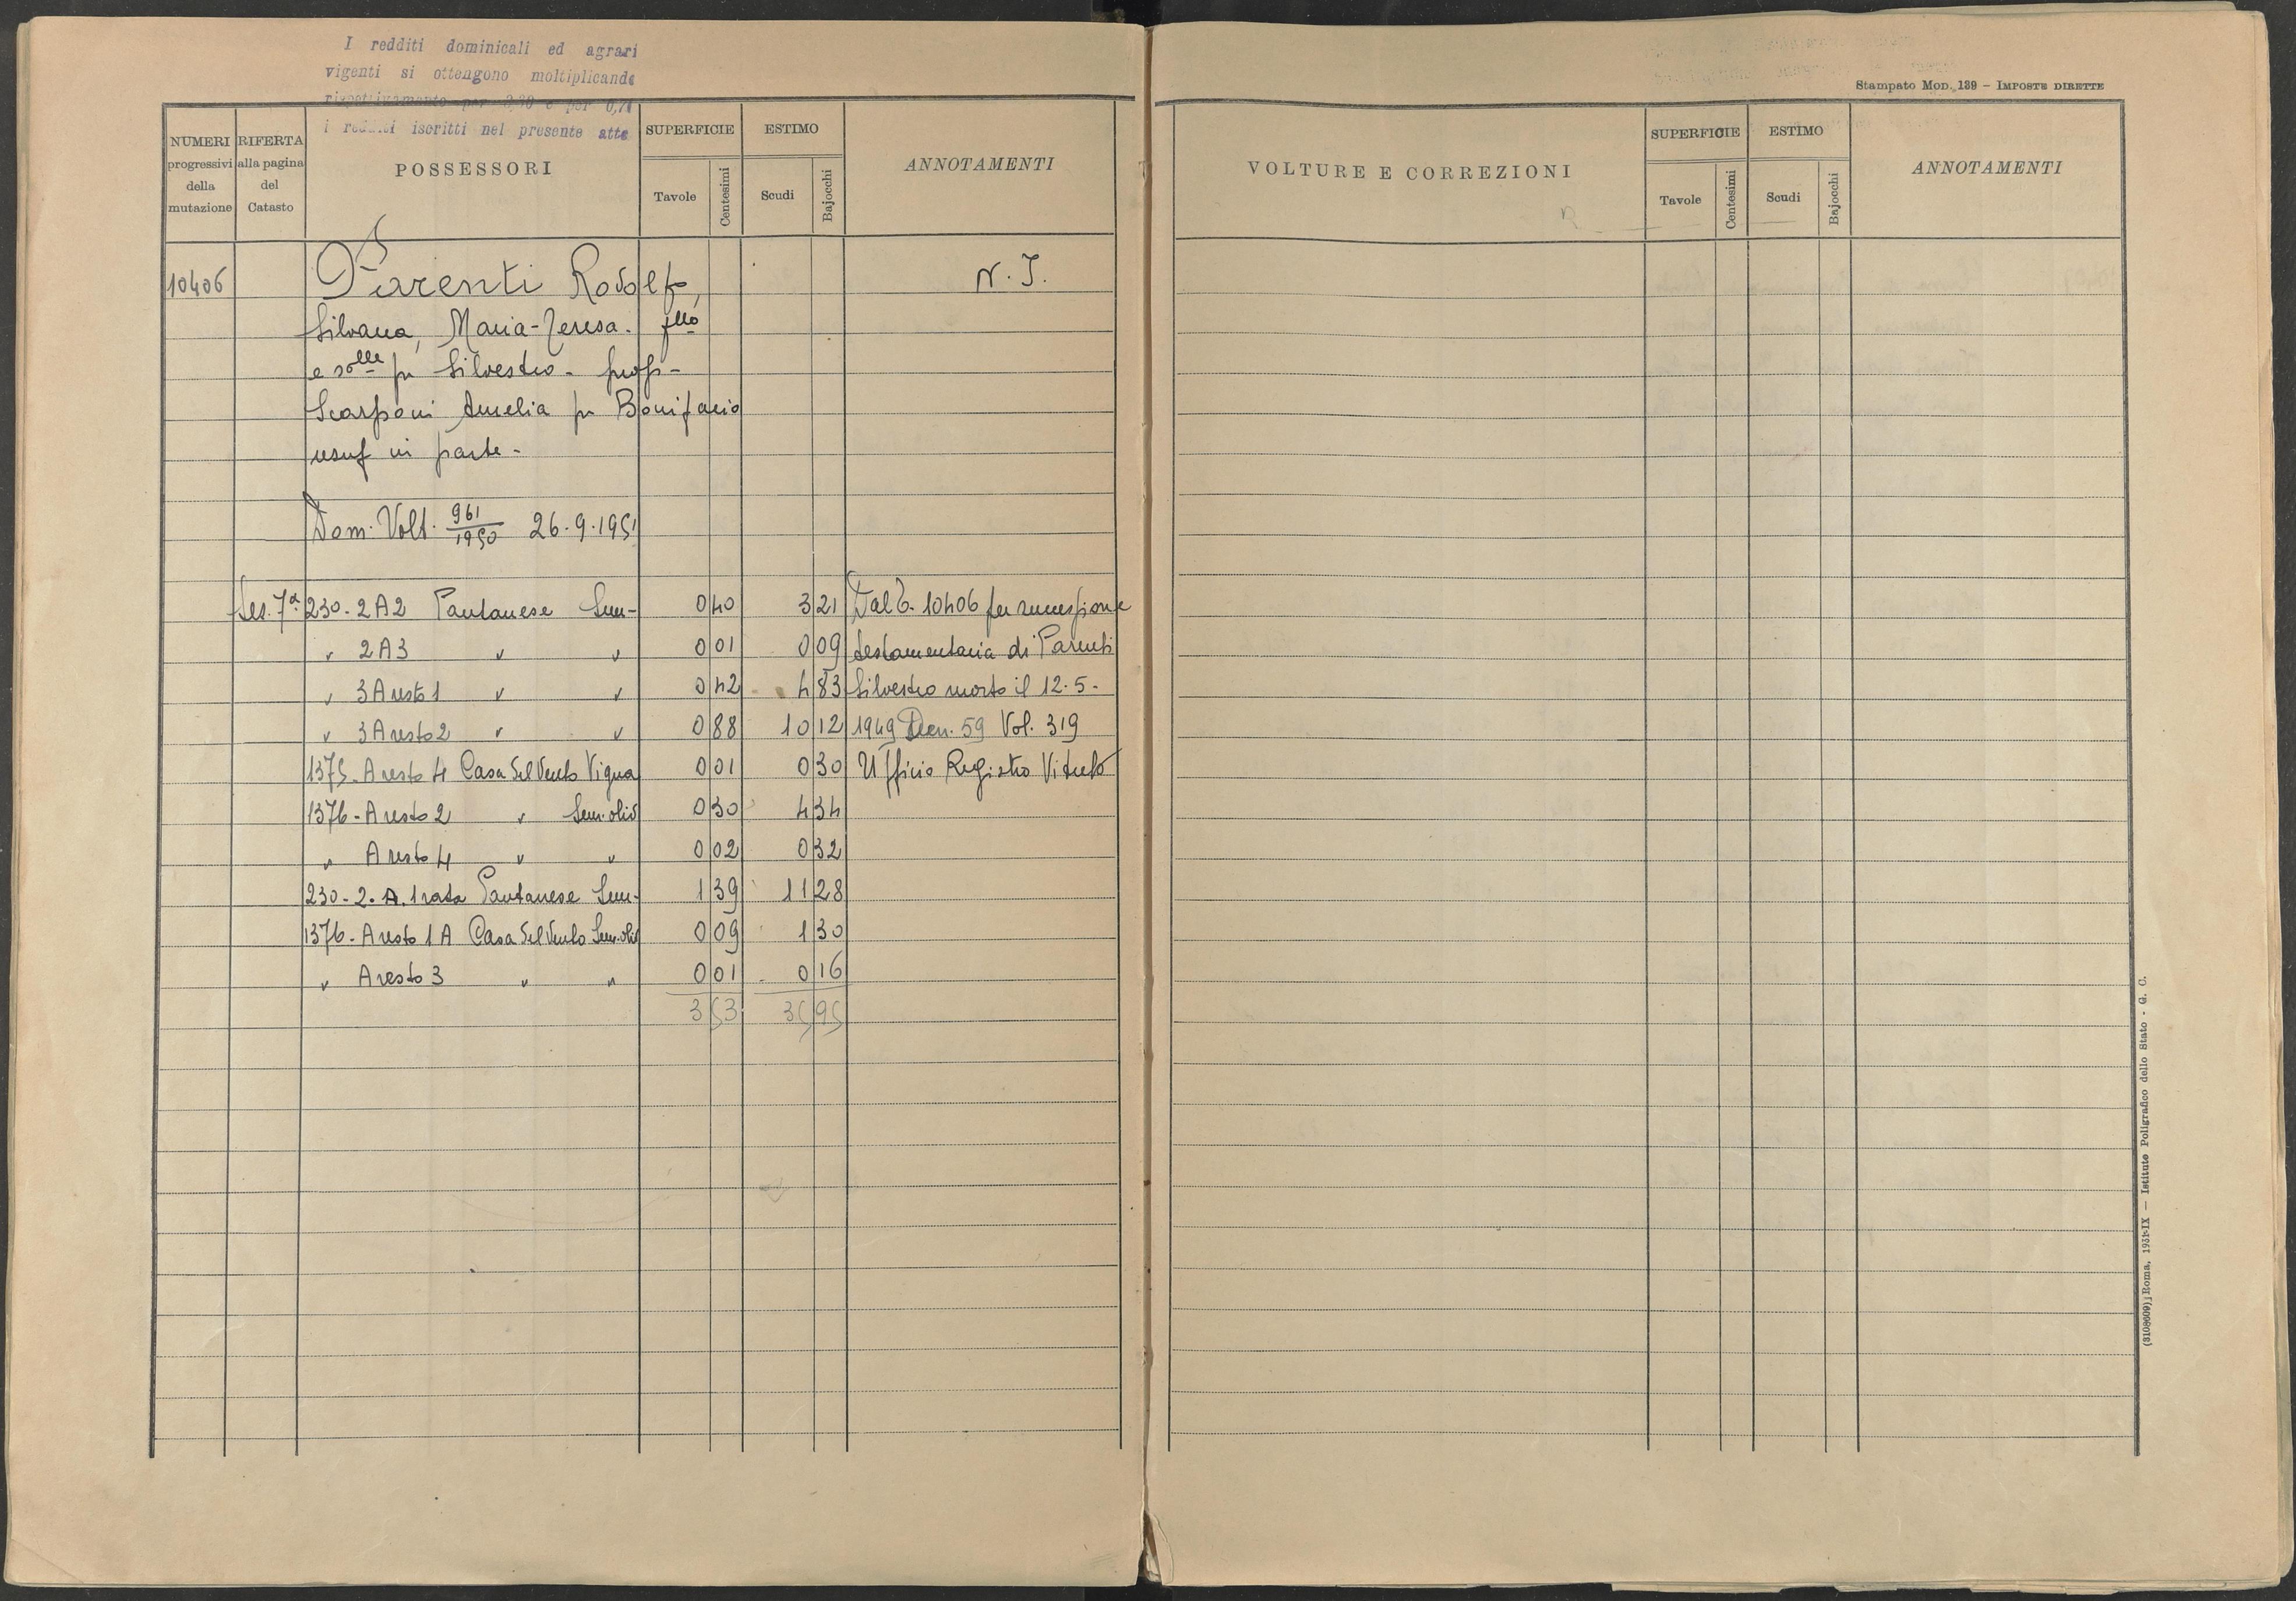 I redditi dominicali ed agrari
vigenti si ottengono moltiplicando
rispettivamente per e per
i redditi iscritti nel presente atto
Stampato Mod. 139 – IMPOSTE DIRETTE
NUMERI progressivi della mutazione RIFERTA alla pagina del Catasto POSSESSORI SUPERFICIE Tavole Centesimi ESTIMO Scudi Bajocchi ANNOTAMENTI
VOLTURE E CORREZIONI SUPERFICIE Tavole Centesimi ESTIMO Scudi Bajocchi ANNOTAMENTI
10406 Parenti Rodolfo, N. I.
Silvana, Maria-Teresa. fllo
e solle fu Silvestro - prop -
Scarponi Amelia fu Bonifacio
usuf in parte -
Dom. Volt. 961/1950 26.9.1951
Ses. 7ª 230 - 2A2 Pantanese Sem - 0 40 3 21 Dal 6. 10406 per successione
" 2A3 " " 0 01 0 09 testamentaria di Parenti
" 3Aresto1 " " 0 42 4 83 Silvestro morto il 12.5 -
" 3Aresto2 " " 0 88 10 12 1949 Den. 59 Vol. 319
1375 - Aresto 4 Casa del Vento Vigna 0 01 0 30 Ufficio Registro Viterbo
1376 - Aresto 2 " Sem. oliv 0 30 4 34
" Aresto 4 " " 0 02 0 32
230 - 2. A. 1 rata Pantanese Sem - 1 39 11 28
1376 - Aresto 1 A Casa del Vento Sem. oliv 0 09 1 30
" Aresto 3 " " 0 01 0 16
3 53 35 95
(3108609) Roma, 1931-IX — Istituto Poligrafico dello Stato - G. C.